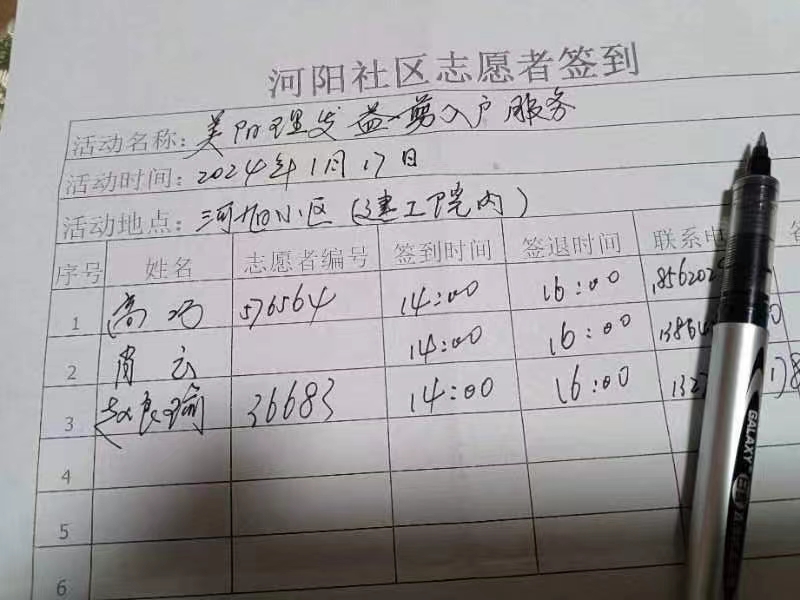 河阳社区志愿者签到
活动名称: 美阳理发 益剪入户服务
活动时间: 2024年1月17日
活动地点: 河阳小区(建工院内)
序号 姓名 志愿者编号 签到时间 签退时间 联系电
1 高巧 576564 14:00 16:00 1856202
2 肖云 14:00 16:00 13864
3 赵良瑜 36683 14:00 16:00 132
4
5
6
GALAXY